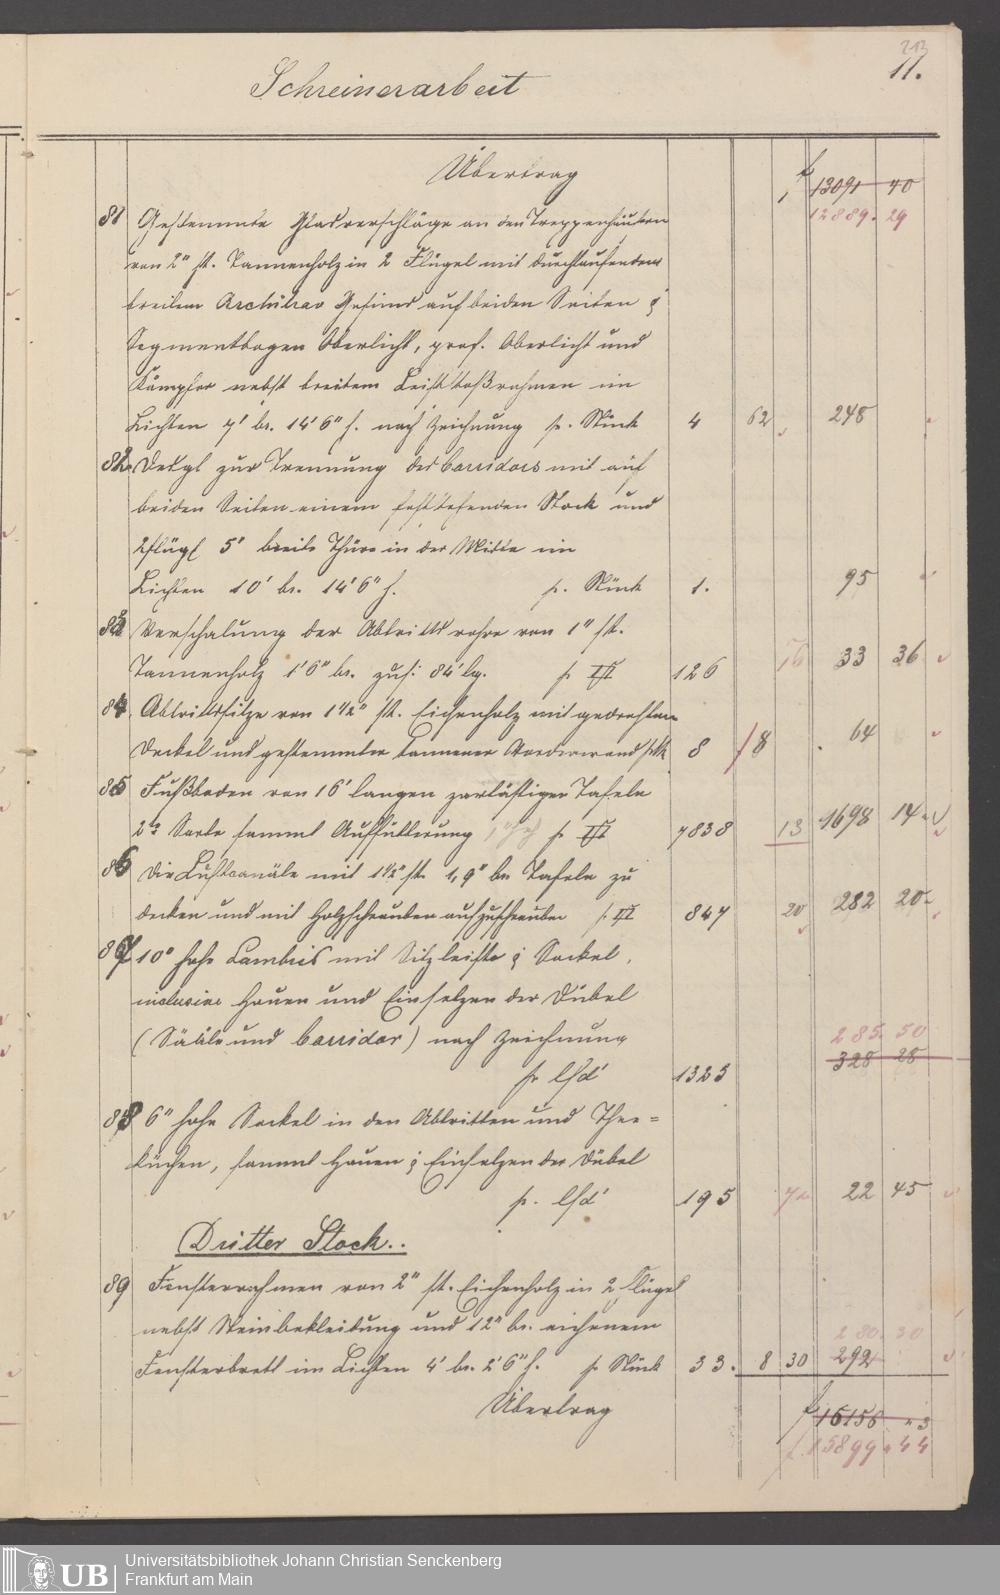 213
11.
Schreinerarbeit
Übertrag f 13091 40
12889. 29
81 Gestemmte Glasverschläge an den Treppenhäusern
von 2" st. Tannenholz in 2 Flügel mit durchlaufendem
breitem Architrav Gesims auf beiden Seiten &
Segmentbogen Oberlicht, prof. Oberlicht und
Kämpfer nebst breitem rahmen im
Lichten 7' br. 14' 6" h. nach Zeichnung pr. Stück 4 62 248
82. Desgl zur Trennung des Corridors mit auf
beiden Seiten einem feststehenden Stock und
2flügl 5' breite Thüre in der Mitte im
Lichten 10' br. 14' 6" h. pr. Stück 1. 95
83 Verschalung der Abtrittsrohre von 1" st.
Tannenholz 1' 6" br. zus: 84' lg. pr 126 16 33 36
84. Abtrittsitze von 1 1/2" st. Eichenholz mit gedrehtem
Deckel und gestemmter tannener Vorderwand 8 8 64
85 Fußboden von 16' langen Tafeln
2te Sorte sammt Auffütterung pr 7838 13 1698 14
86 Die Luftcanäle mit 1 1/2" st. 1,9" br Tafeln zu
decken und mit Holzschrauben aufzuschrauben pr 847 20 282 20
87 10" hohe Lambris mit Sitzleiste & Sockel,
inclusive Hauen und Einsetzen der Dübel
(Sääle und Corridor) nach Zeichnung
285. 50
pr lfd' 1323 328 28
88 6" hohe Sockel in den Abtritten und Thee=
küchen, sammt Hauen & Einsetzen der Dübel
pr. lfd' 195 22 45
Dritter Stock..
89 Fensterrahmen von 2" st. Eichenholz in 2 Flügel
nebst Steinbekleidung und 12" br. eichenem
280. 30
Fensterbrett im Lichten 4' br. 2' 6" h. pr Stück 33. 8 30 292
Übertrag f 16156 " 3
f. 15899 " 44
UB
Universitätsbibliothek Johann Christian Senckenberg
Frankfurt am Main